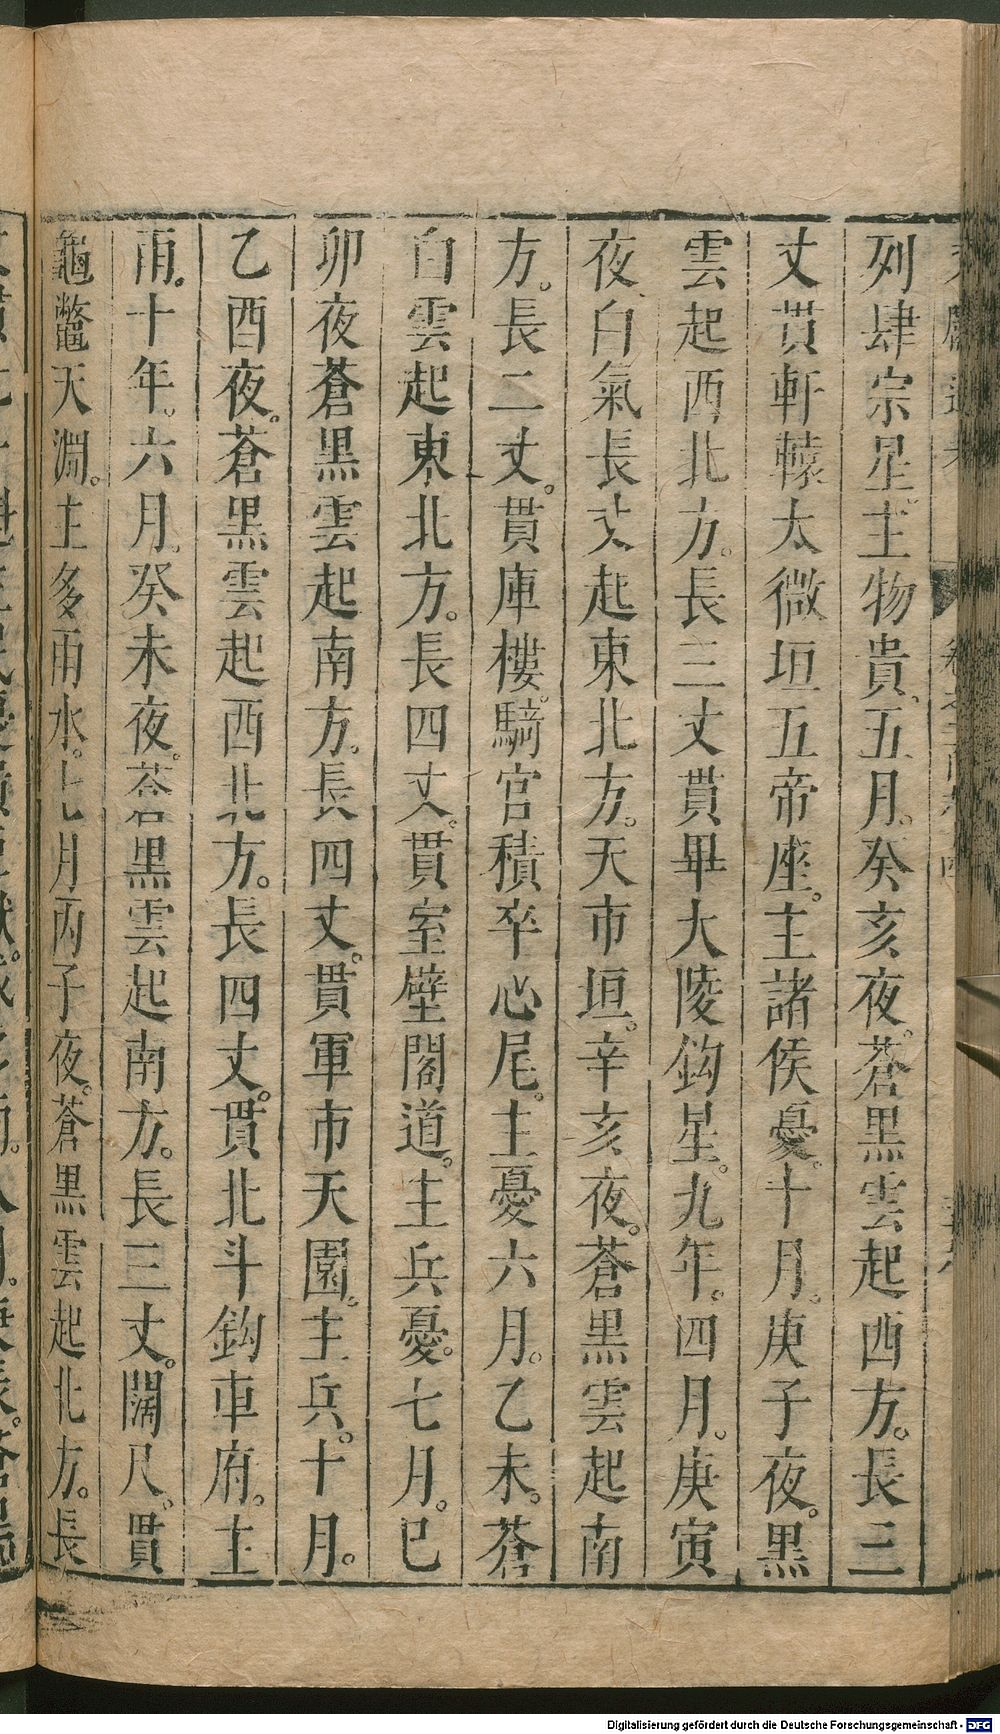 列肆宗星。主物貴。五月。癸亥夜。蒼黑雲起西方。長三
丈貫軒轅太微垣五帝座。主諸侯憂。十月。庚子夜。黑
雲起西北方。長三丈貫畢大陵鈎星。九年。四月。庚寅
夜。白氣長丈起東北方。天市垣。辛亥夜。蒼黑雲起南
方。長二丈。貫庫樓。騎官積卒心尾。主憂六月。乙未。蒼
白雲起東北方。長四丈。貫室壁閣道。主兵憂。七月。巳
卯夜蒼黑雲起南方。長四丈。貫軍市天園。主兵。十月。
乙酉夜。蒼黑雲起西北方。長四丈。貫北斗鈎車府。主
雨。十年。六月。癸未夜。蒼黑雲起南方。長三丈。闊尺。貫
龜鼈天淵。主多雨水。七月丙子夜。蒼黑雲起北方。長
Digitalisierung gefördert durch die Deutsche Forschungsgemeinschaft - DFG